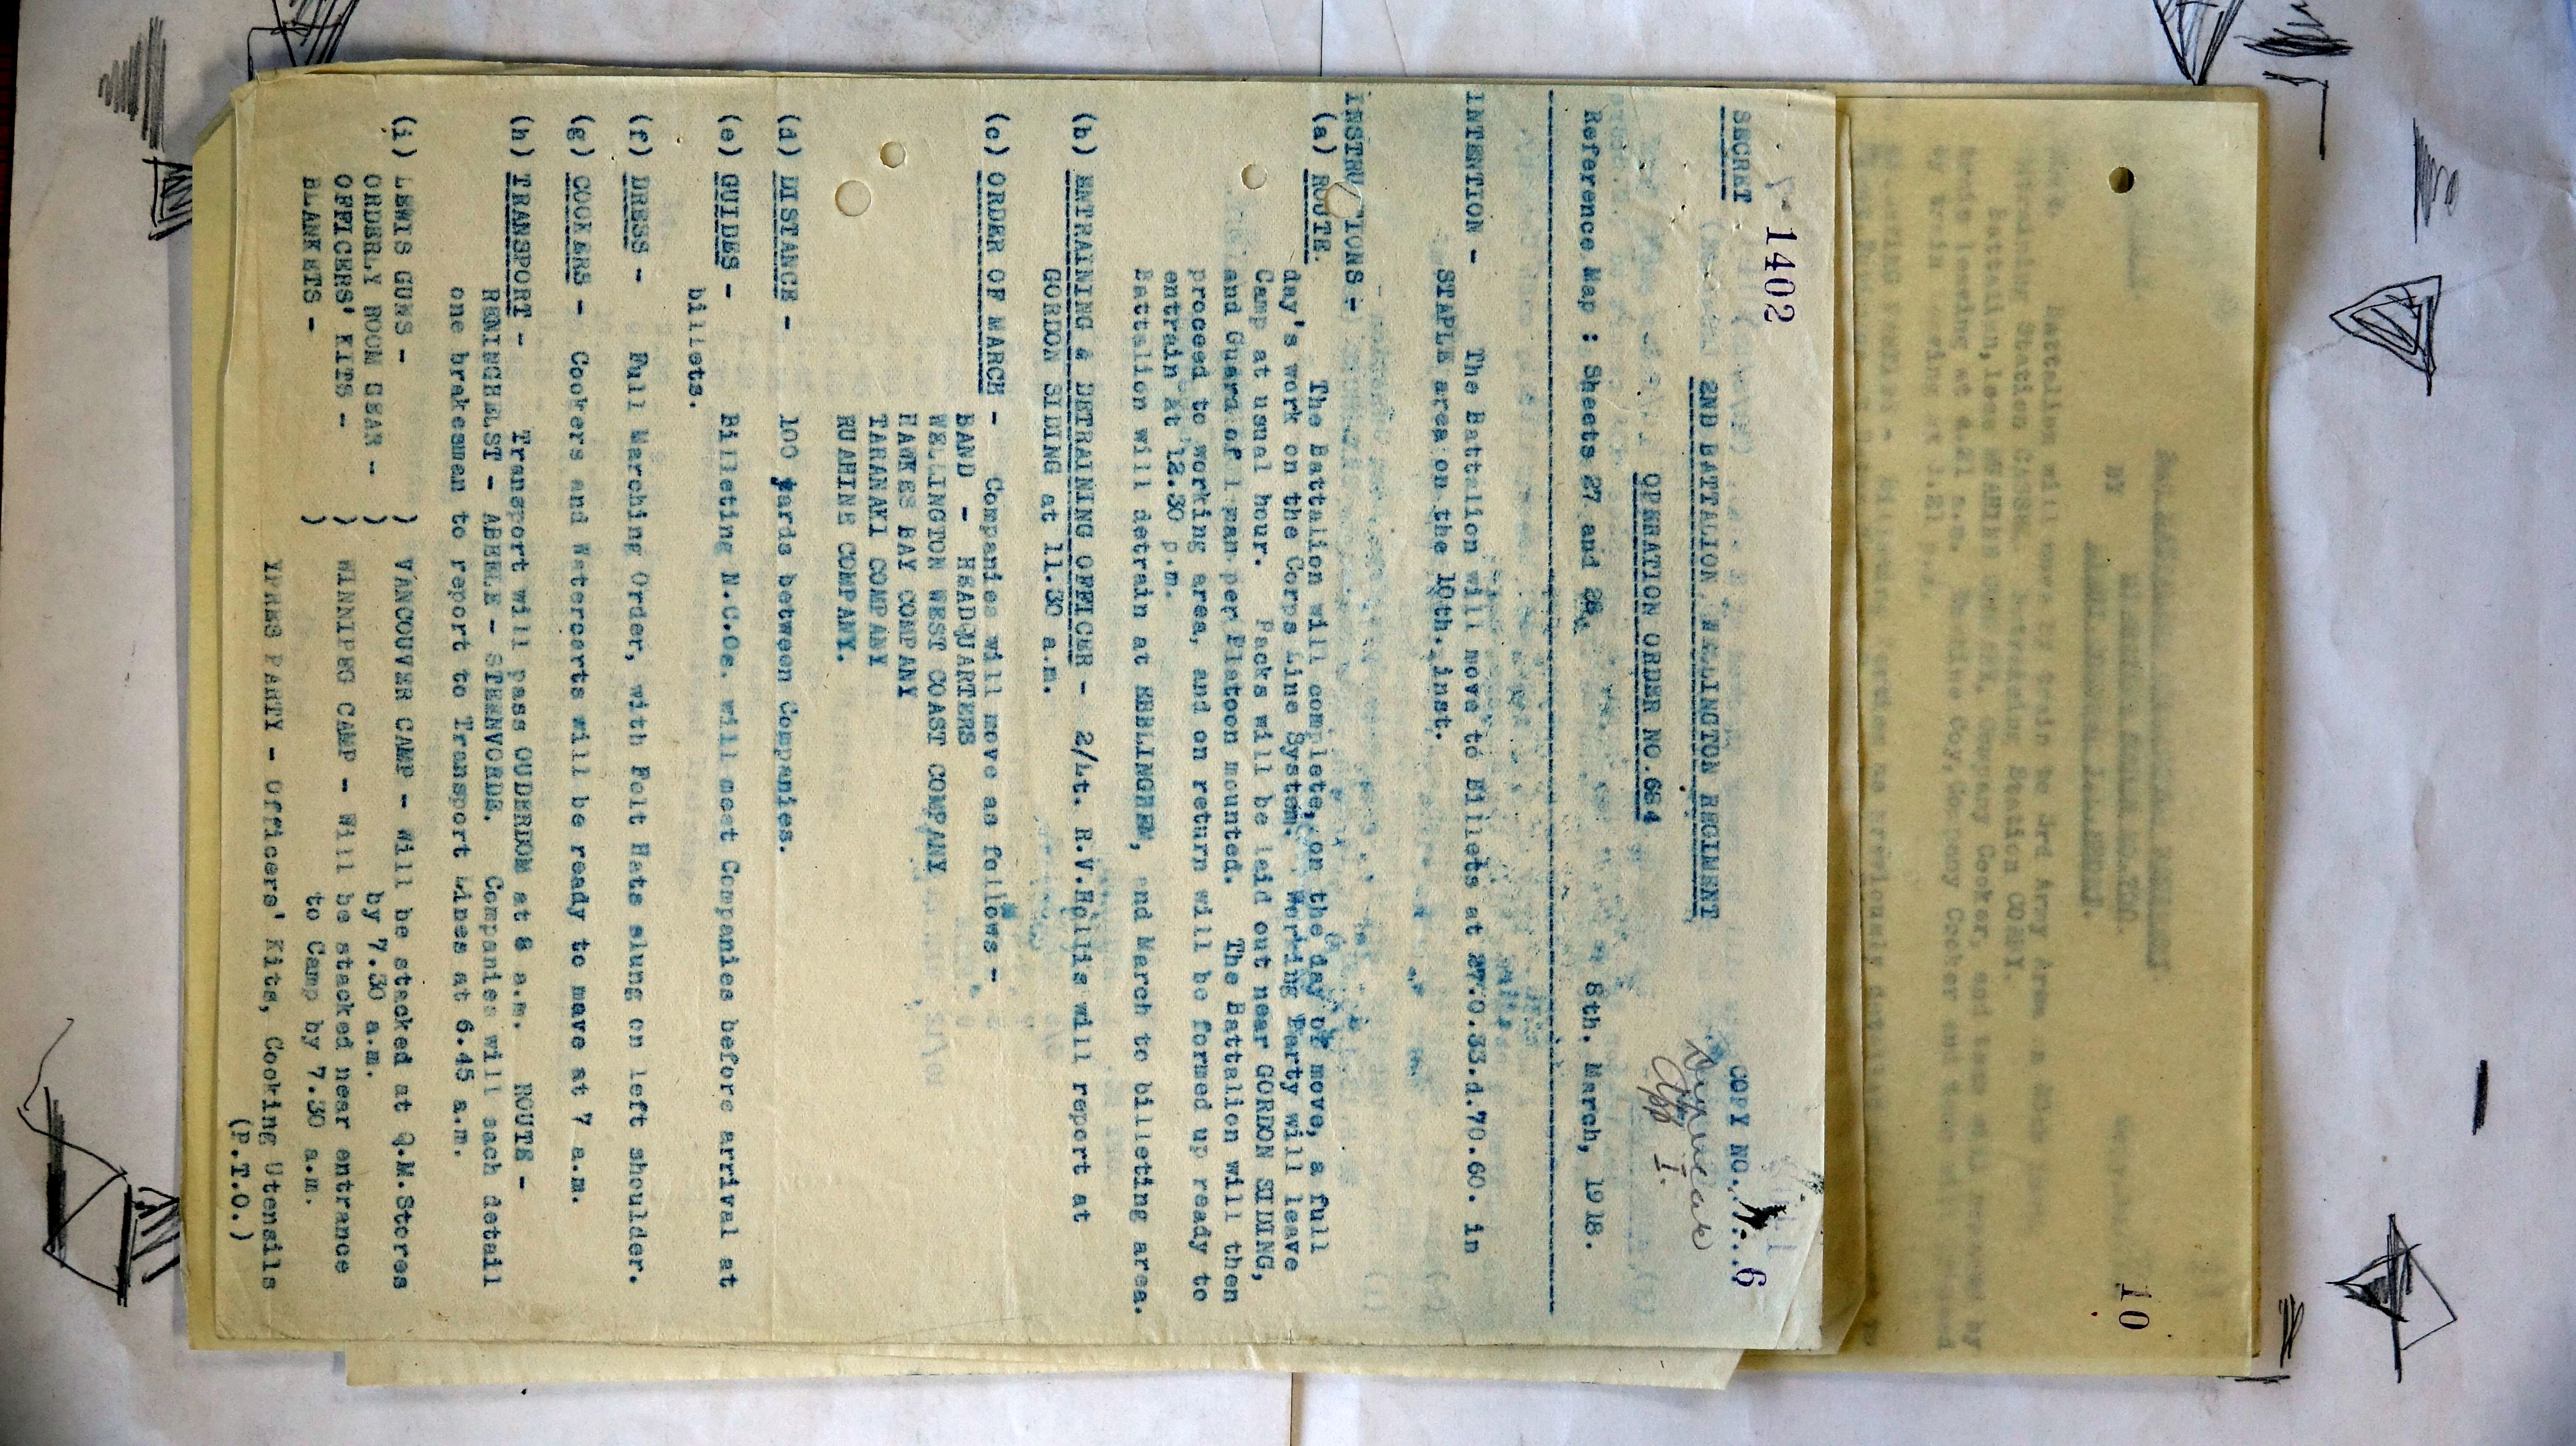 1402
SECRET
COPY NO. 7... 6
2ND BATTALION, WELLINGTON REGIMENT
OPERATION ORDER NO.684
App I.
Reference Map : Sheets 27 and 28. 8th. March, 1918.
INTENTION - The Battalion will move to Billets at 27.O.33.d.70.60. in
STAPLE area on the 10th. inst.
INSTRU TIONS -
(a) ROUTE. The Battalion will complete, on the day of move, a full
day's work on the Corps Line System. Working Party will leave
Camp at usual hour. Packs will be laid out near GORDON SIDING,
and Guard of 1 man per Platoon mounted. The Battalion will then
proceed to working area, and on return will be formed up ready to
entrain at 12.30 p.m.
Battalion will detrain at EBBLINGHEM, and March to billeting area.
(b) ENTRAINING & DETRAINING OFFICER - 2/Lt. R.V.Hollis will report at
GORDON SIDING at 11.30 a.m.
(c) ORDER OF MARCH - Companies will move as follows -
BAND - HEADQUARTERS
WELLINGTON WEST COAST COMPANY
HAWKES BAY COMPANY
TARANAKI COMPANY
RUAHINE COMPANY.
(d) DISTANCE - 100 yards between Companies.
(e) GUIDES - Billeting N.C.Os. will meet Companies before arrival at
billets.
(f) DRESS - Full Marching Order, with Felt Hats slung on left shoulder.
(g) COOKERS - Cookers and Watercarts will be ready to move at 7 a.m.
(h) TRANSPORT - Transport will pass OUDERDOM at 8 a.m. ROUTE -
RENINGHELST - ABEELE - STEENVORDE. Companies will each detail
one brakesman to report to Transport Lines at 6.45 a.m.
(i) LEWIS GUNS - ) VANCOUVER CAMP - Will be stacked at Q.M.Stores
ORDERLY ROOM GEAR - ) by 7.30 a.m.
OFFICERS' KITS - ) WINNIPEG CAMP - Will be stacked near entrance
BLANKETS - ) to Camp by 7.30 a.m.
YPRES PARTY - Officers' Kits, Cooking Utensils
(P.T.O.)
10